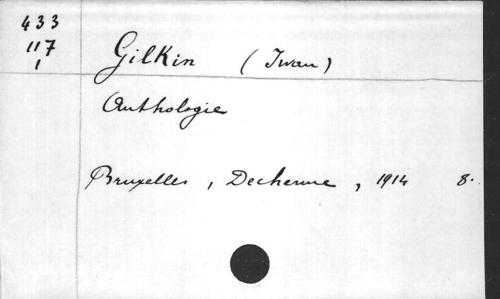 433
117
1
Gilkin (Iwan)
Anthologie
Bruxelles, Dechenne, 1914 8.